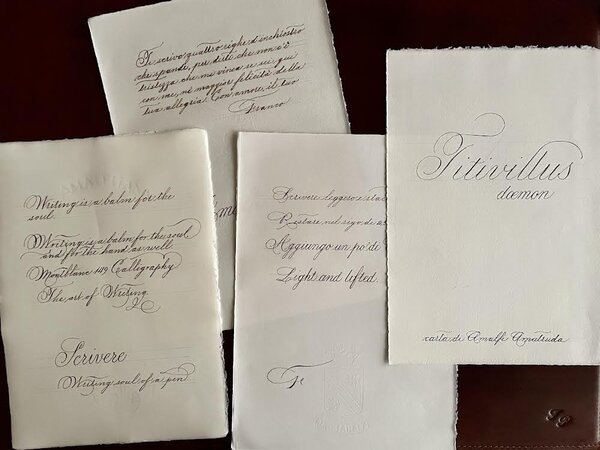 Te scrivo quattro righe d'inchiostro
che spande, per dirti che non c'è
tristezza che mi vinca se sei qui
con me, né maggior felicità della
tua allegria. Con amore, il tuo
Franco
Writing is a balm for the
soul
Writing is a balm for the soul
and for the hand as well
Montblanc 149 Calligraphy
The art of Writing
Scrivere
Writing soul of a pen
Scrivere leggero e
Restare nel rigo di
Aggiungo un po' di
Light and lifted.
Te
Titivillus
dæmon
carta di Amalfi Amatruda